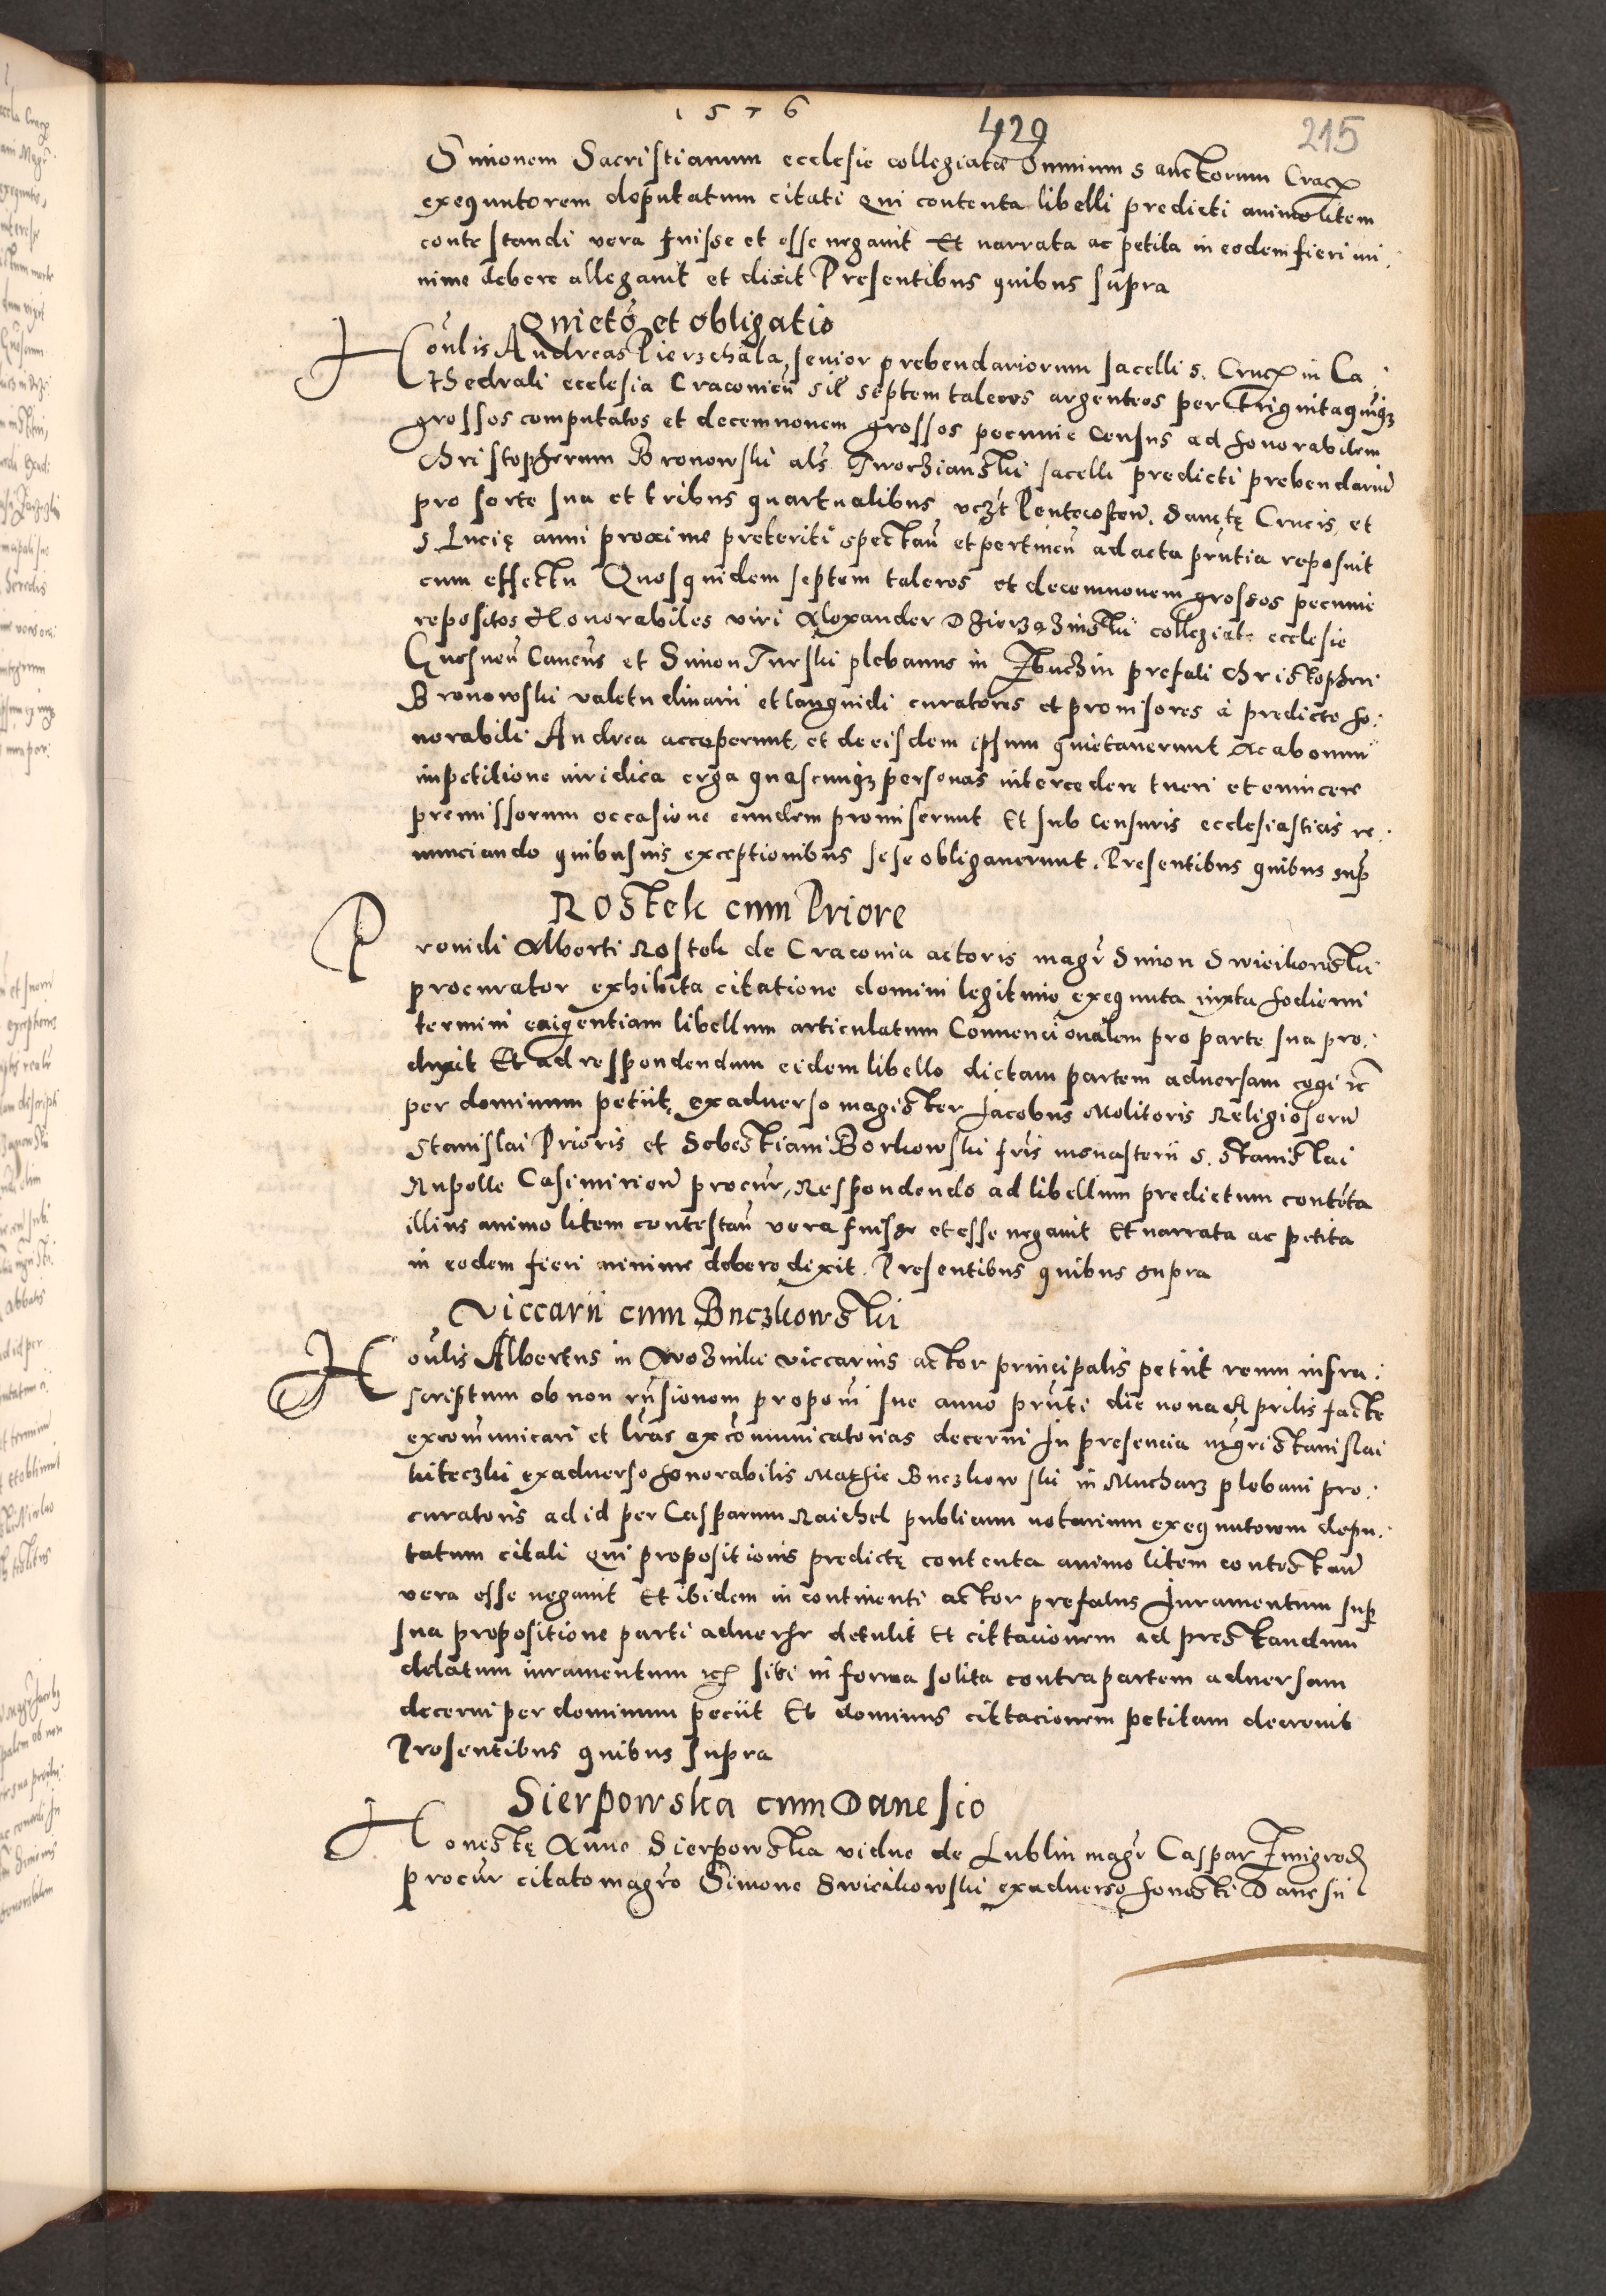 1576
429
215
Simonem Sacristianum ecclesie collegiatæ Omnium Sanctorum Cracx
exequutorem deputatum citati Qui contenta libelli predicti animo litem
contestandi vera fuisse et esse negavit Et narrata ac petita in eodem fieri mi:
nime debere allegavit et dixit Presentibus quibus supra
Quieto et obligatio
Honlis Andreas Pierzchala, senior prebendariorum sacelli s. Crucx in Ca:
thedrali ecclesia Cracovien sil septem taleros argenteos per trigintaquiqz
grossos computatos et decemnovem grossos pecunie Census ad honorabilem
Christopherum Bronowski als Tworzianski sacelli predicti prebendariu
pro sorte sua et tribus quartualibus vczt Pentecosten, Sanctę Crucis, et
s. Lucię anni proxime preteriti spectan et pertinen ad acta prntia reposuit
cum effectu Quosquidem septem taleros et decemnovem grossos pecunie
repositos Honorabiles viri Alexander collegiate ecclesie
Gnesnen Cancus et Simon Turski plebanus in prefati Christopheri
Bronowski valetudinarii et languidi curatores et provisores à predicto ho:
norabili Andrea acceperunt, et de eisdem ipsum quietaverunt Ac ab omni
impetitione iuridica erga quascunqz personas intercedere tueri et evincere
premissorum occasione eundem promiserunt Et sub Censuris ecclesiasticis re:
nunciando quibusvis exceptionibus sese obligaverunt. Presentibus quibus sup
Rostek cum Priore
Providi Alberti Rostek de Cracovia actoris magr Simon Swieikowski
procurator exhibita citatione domini legitime exequuta iuxta hodierni
termini exigentiam libellum articulatum Convencionalem pro parte sua pro:
duxit Et ad respondendum eidem libello dictam partem adversam cogi rc
per dominum petiit, ex adverso magister Jacobus Molitoris Religiosoru
Stanislai Prioris et Sebestiani Borkowski fris monasterii s. Stanislai
Rupelle Casimirien procur, Respondendo ad libellum predictum conteta
illius animo litem contestan vera fuisse et esse negavit Et narrata ac petita
in eodem fieri minime debere dixit. Presentibus quibus supra
Viccarii cum Buczkowski
Honlis Albertus in Wozniki viccarius actor principalis petiit reum infra:
scriptum ob non rnsionem proponi sue anno prnti die nona Aprilis facte
excommunicari et lras excomunicatorias decerni In presencia mgri Stanislai
kiteczki ex adverso honorabilis Mathie Buczkowski in Mucharz plebani pro:
curatoris ad id per Casparum Raichel publicum notarium exequutorem depu:
tatum citati Qui propositionis predictę contenta animo litem contestan
vera esse negavit Et ibidem in continenti actor prefatus Juramentum sup
sua propositione parti adverse detulit Et cittacionem ad prestandum
delatum iuramentum rc sibi in forma solita contra partem adversam
decerni per dominum peciit Et dominus cittacionem petitam decrevit
Presentibus quibus supra
Sierpowska cum Danesio
Honestę Anne Sierpowska vidue de Lublin magr Caspar Zmigrod
procur citato magro Simone Swieikowski ex adverso honesti Danesii